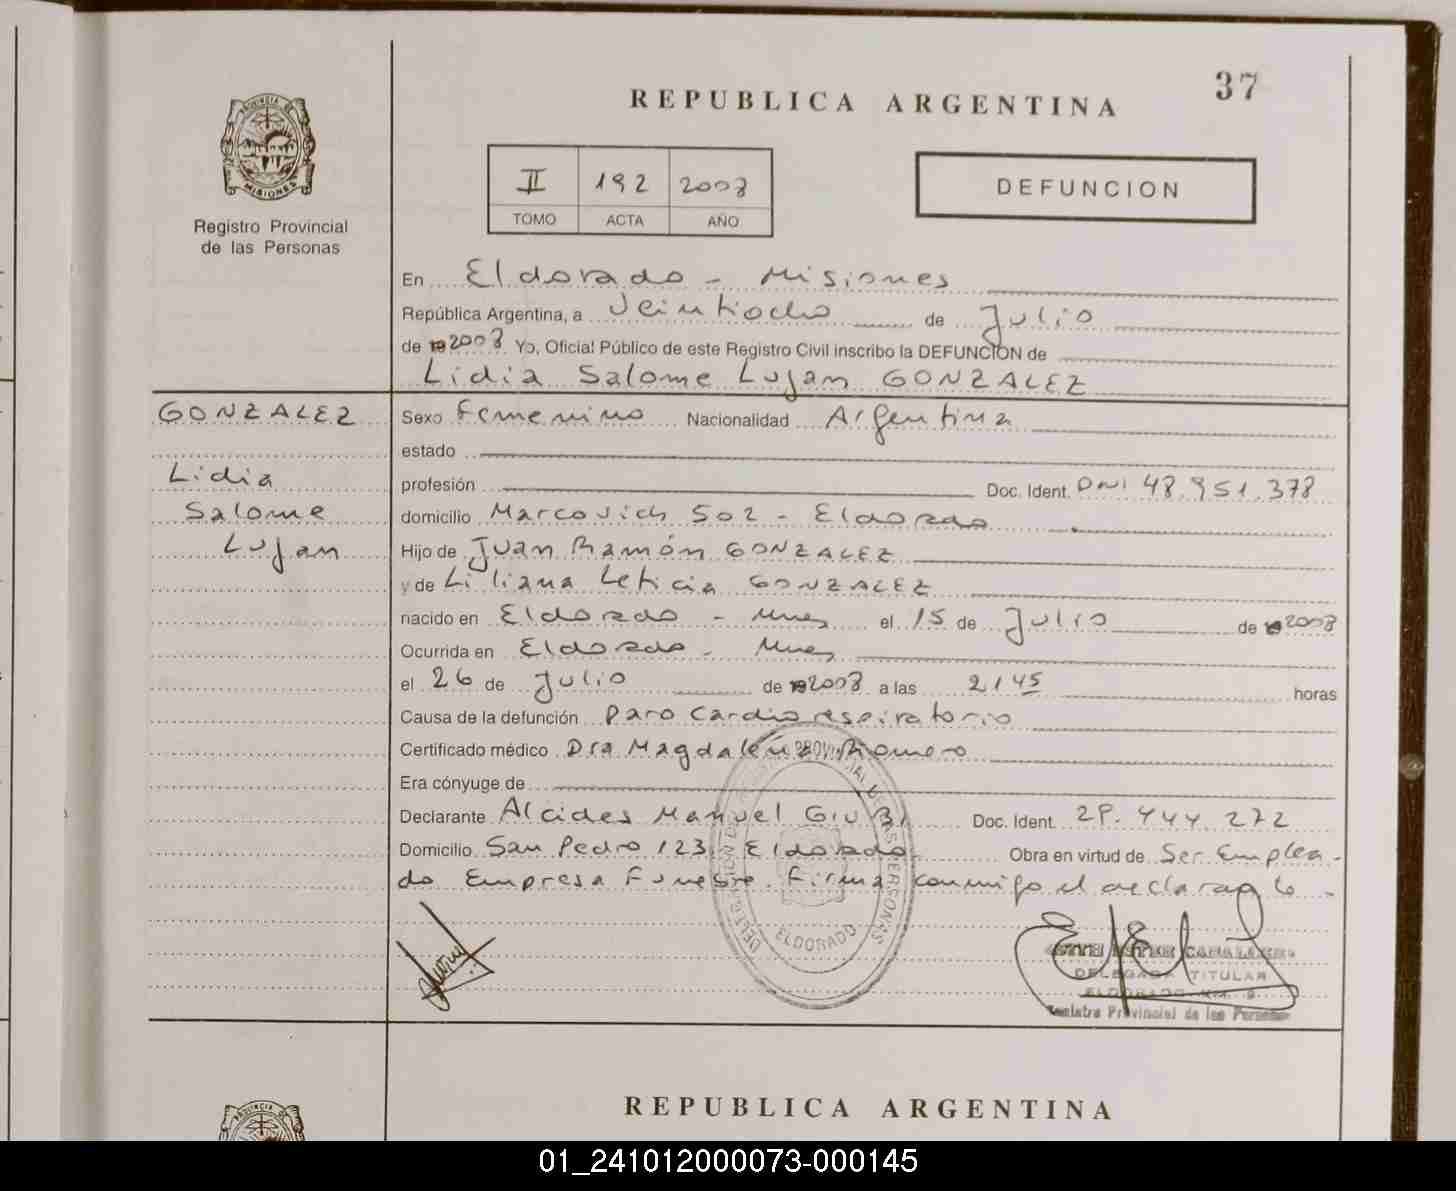 37
REPUBLICA ARGENTINA
PROVINCIA DE
MISIONES
Registro Provincial
de las Personas
II 192 2008
TOMO ACTA AÑO
DEFUNCION
En Eldorado - Misiones
República Argentina, a Veintiocho de Julio
de 2008 Yo, Oficial Público de este Registro Civil inscribo la DEFUNCION de
Lidia Salome Lujan GONZALEZ
GONZALEZ
Lidia
Salome
Lujan
Sexo Femenino Nacionalidad Argentina
estado
profesión Doc. Ident. DNI 48.951.378
domicilio Marcovich 502 - Eldorado
Hijo de Juan Ramón GONZALEZ
y de Liliana Leticia GONZALEZ
nacido en Eldorado - Mnes el 15 de Julio de 2008
Ocurrida en Eldorado - Mnes
el 26 de Julio de 2008 a las 21 45 horas
Causa de la defunción Paro Cardiorespiratorio
Certificado médico Dra Magdalena Romero
Era cónyuge de
Declarante Alcides Manuel GIUBI Doc. Ident. 29.444.272
Domicilio San Pedro 123 Eldorado Obra en virtud de Ser Emplea-
do Empresa Funebre. Firma conmigo el declarante -
ELDORADO
ESTER CABALLERO
DELEGADA TITULAR
Registro Provincial de las Personas
PROVINCIA DE
REPUBLICA ARGENTINA
01_241012000073-000145